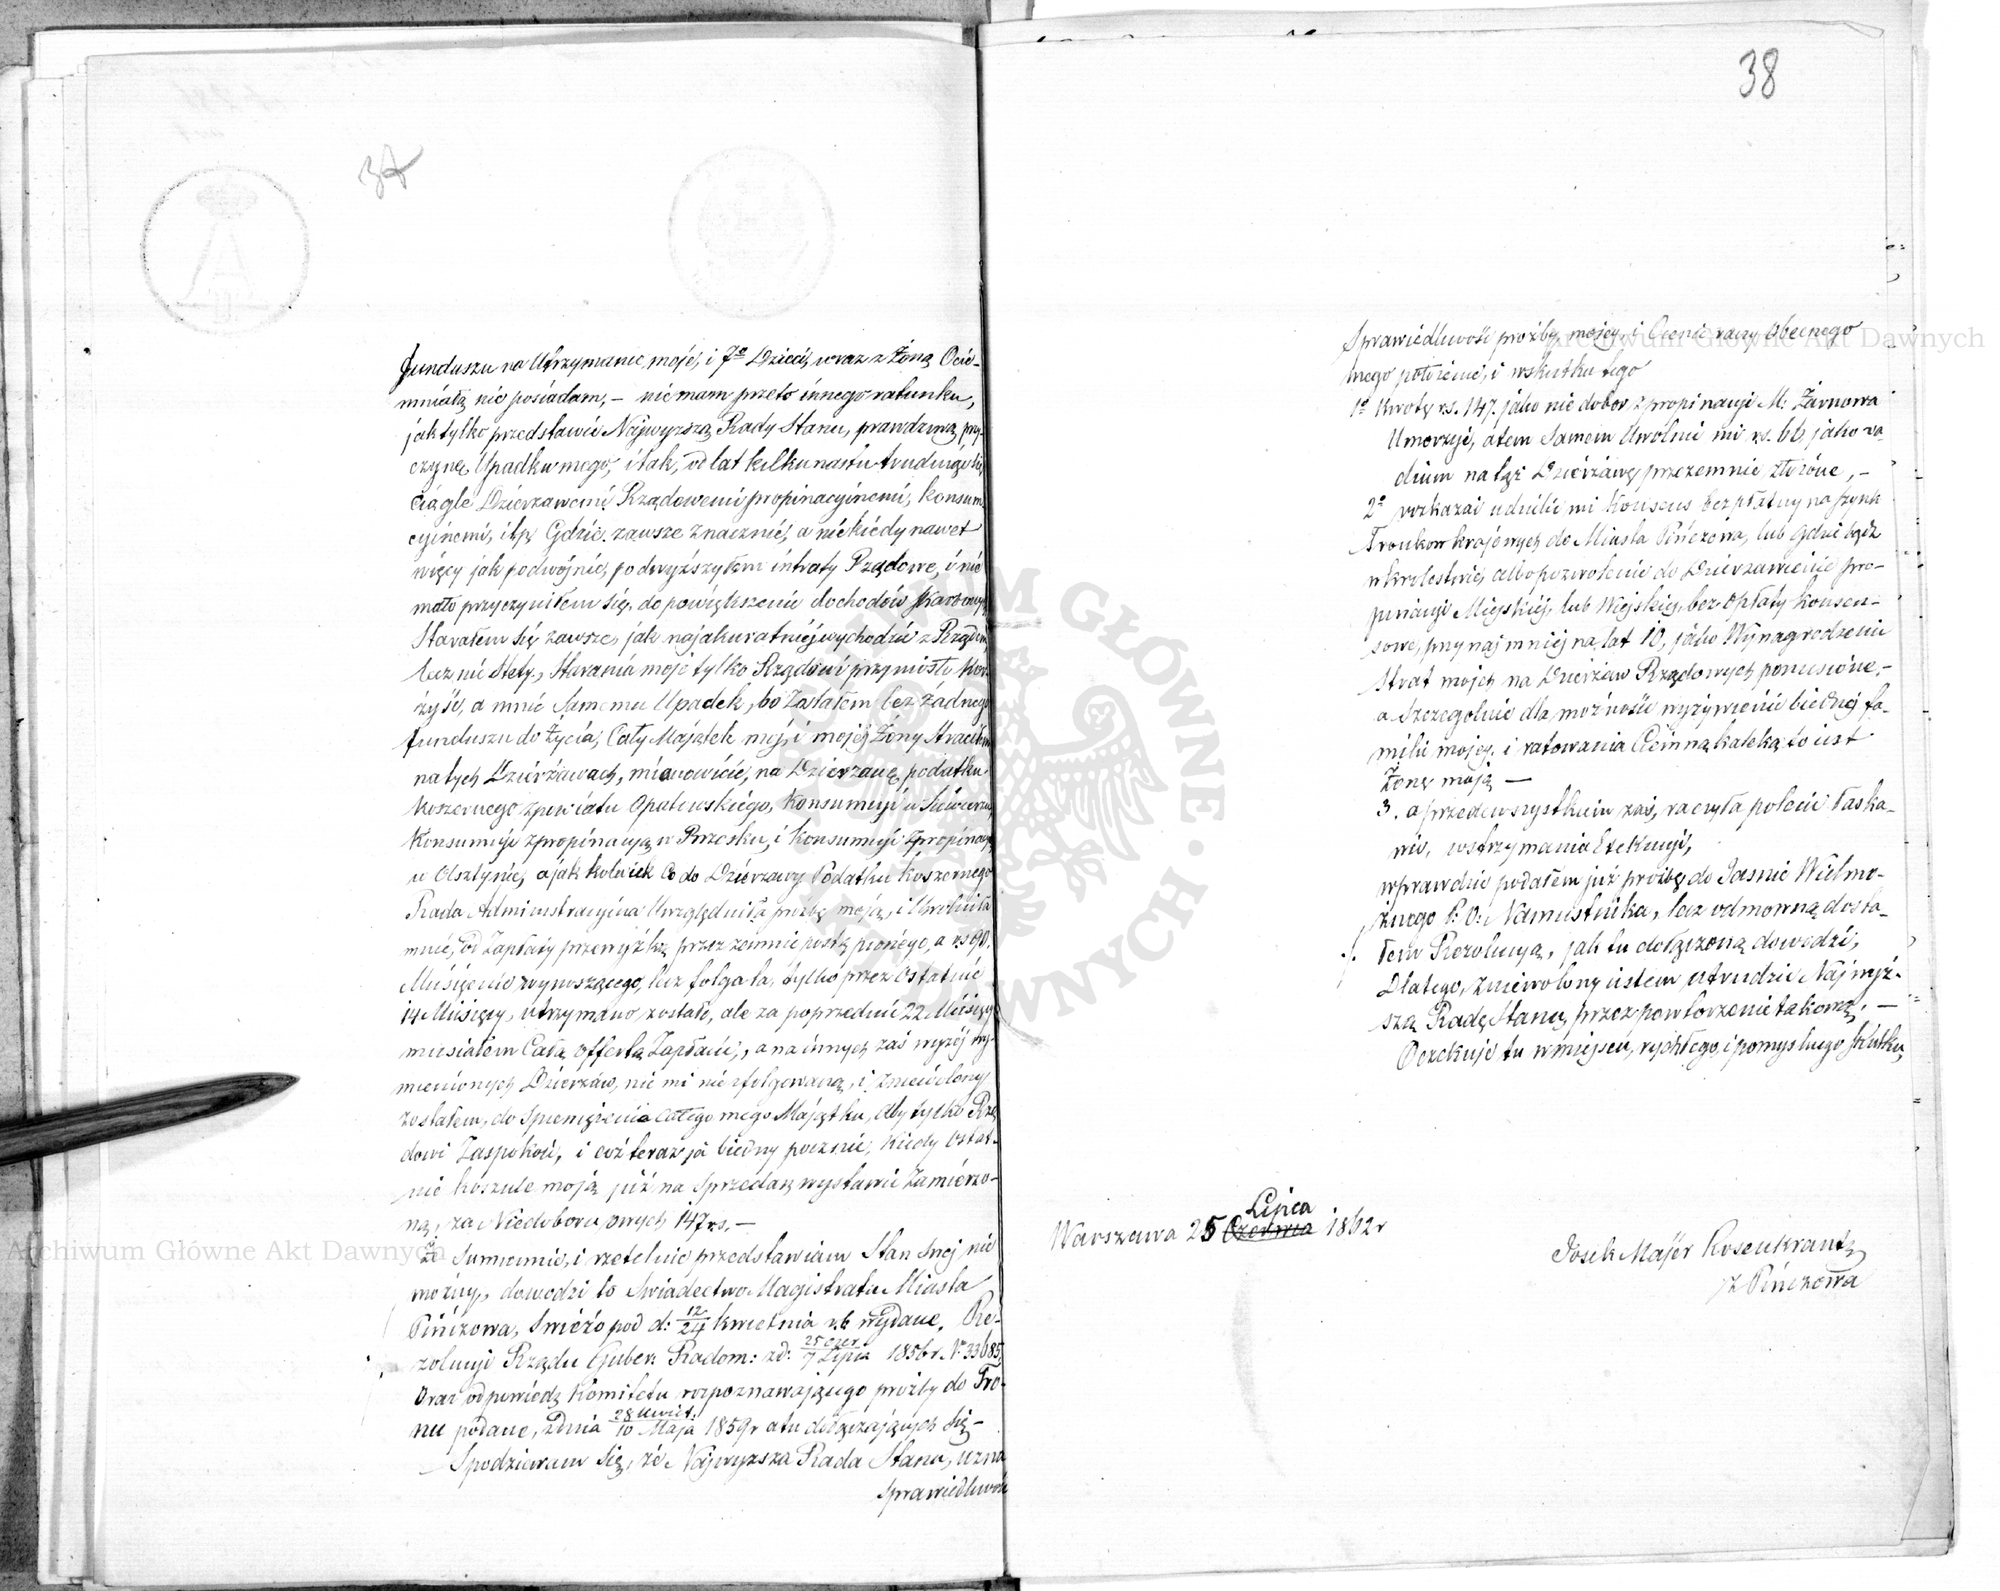 37
funduszu na Utrzymanie moje, i 7ro Dzieci, wraz z Żoną Ocie-
mniałą nie posiadam, – nie mam przeto innego ratunku,
jak tylko przedstawić Najwyzszą Rady Stanu, prawdziwą przy-
czynę Upadku mego, i tak, od lat kilkunastu trudniąc się
ciągle Dzierzawemi Rządowemi propinacyinemi, konsum-
cyinemi, itp. Gdzie zawsze znacznie, a niekiedy nawet
więcy jak podwójnie, podwyższyłem intraty Rządowe, i nie
mało przyczyniłem się do powiększenia dochodów Skarbowych
Starałem się zawsze, jak najakuratniej wychodzić z Rządem,
lecz nie Stety, Starania moje tylko Rządowi przyniosły Kor-
zyść, a mnie Samemu Upadek, bo Zostałem bez żadnego
funduszu do Życia, Cały Majątek mój, i mojéj Żony Straciłem
na tych Dzierżawach, mianowicie, na Dzierzawę podatku
Koszernego z powiatu Opatowskiego, Konsumcyi w Siewierzu,
Konsumcyi z propinacyą w Brzesku, i Konsumcyi z propinacyą
w Olsztynie, a jakkolwiek Co do Dzierzawy Podatku koszernego
Rada Administracyina Uwzględniła prozbę moją, i Uwolniła
mnie, od Zapłaty przewyżkę przezzemnie postąpionego, a rs 90,
Miesięcznie wynoszącego, lecz folga ta, tylko przez Ostatnie
14 Miesięcy, utrzymano zostało, ale za poprzednie 22 Miesięcy
musiałem Całą Offertę Zapłacić, a na innych zaś wyzéj wy-
mienionych Dzierzaw, nic mi nie sfolgowaną, i zniewolony
zostałem, do Spieniężenia całego mego Majątku, aby tylko Rzą-
dowi Zaspokoić, i cóż teraz ja biedny pocznie, Kiedy Ostat-
nie koszule moją już na Sprzedaz wystawie Zamierzo-
ną, za Niedoboru owych 147 rs. –
Że Sumiennie, i rzetelnie przedstawiam Stan Swój nie
możny, dowodzi to Swiadectwo Magistratu Miasta
Pińczowa, Swiéżo pod d: 12/24 kwietnia r.b. wydane. Re-
zolucyi Rządu Guber: Radom: z d: 25 Czer./7 Lipca 1856 r. No 33685,
Oraz odpowiedz Komitetu rozpoznawającego prozby do Tro-
nu podane, z dnia 28 Kwiet./10 Maja 1859 r. a tu dołączających się –
Spodziewam się, że Najwyzsza Rada Stanu, uzna
sprawiedliwość
38
Sprawiedliwość prozby mojéj, i Ocenić raczy Obecnego
mego położenie, i w skutku tego
1o Kwotę rs. 147. jako niedobor, z propinacyi M: Żarnowa
Umorzyć, a tem Samem Uwolnić mi rs. 66, jako va-
dium na tąż Dzierżawę przezemnie złożone, –
2o rozkazać udzielić mi Konsens bezpłatny na szynk
Trunkow krajowych do Miasta Pińczowa, lub gdzie bądź
w krolestwie, albo pozwolenie do Dzierzawienie pro-
pinacyi Miejskiéj, lub Wiejskiej, bez opłaty konsen-
sowé, przynajmniej na lat 10, jako Wynagrodzenie
Strat mojch na Dzierżaw Rządowych poniesione, –
a Szczególnie dla możności wyżywienie biednej fa-
milii mojej, i ratowania Ciemną kaleką to iest
Żonę moją —
3. a przedewszystkiem zaś, raczyła polecić łaska-
wie, wstrzymania Exekucyi,
wprawdzie podałem już prozbę do Jasnie Wielmo-
żnego P: O: Namiestnika, lecz odmowną dosta-
łem Rezolucyą, jak tu dołączoną dowodzi,
Dlatego, Zniewolony iestem utrudzić Najwyż-
szą Radę Stanu, przez powtorzenie takową. —
Oczekuje tu w miejscu, rychłego, i pomyslnego skutku,
Lipca
Warszawa 25 Czerwca 1862 r
Josek Majer Rosenkrantz
z Pińczowa
Archiwum Główne Akt Dawnych
Archiwum Główne Akt Dawnych
ARCHIWUM GŁÓWNE AKT DAWNYCH